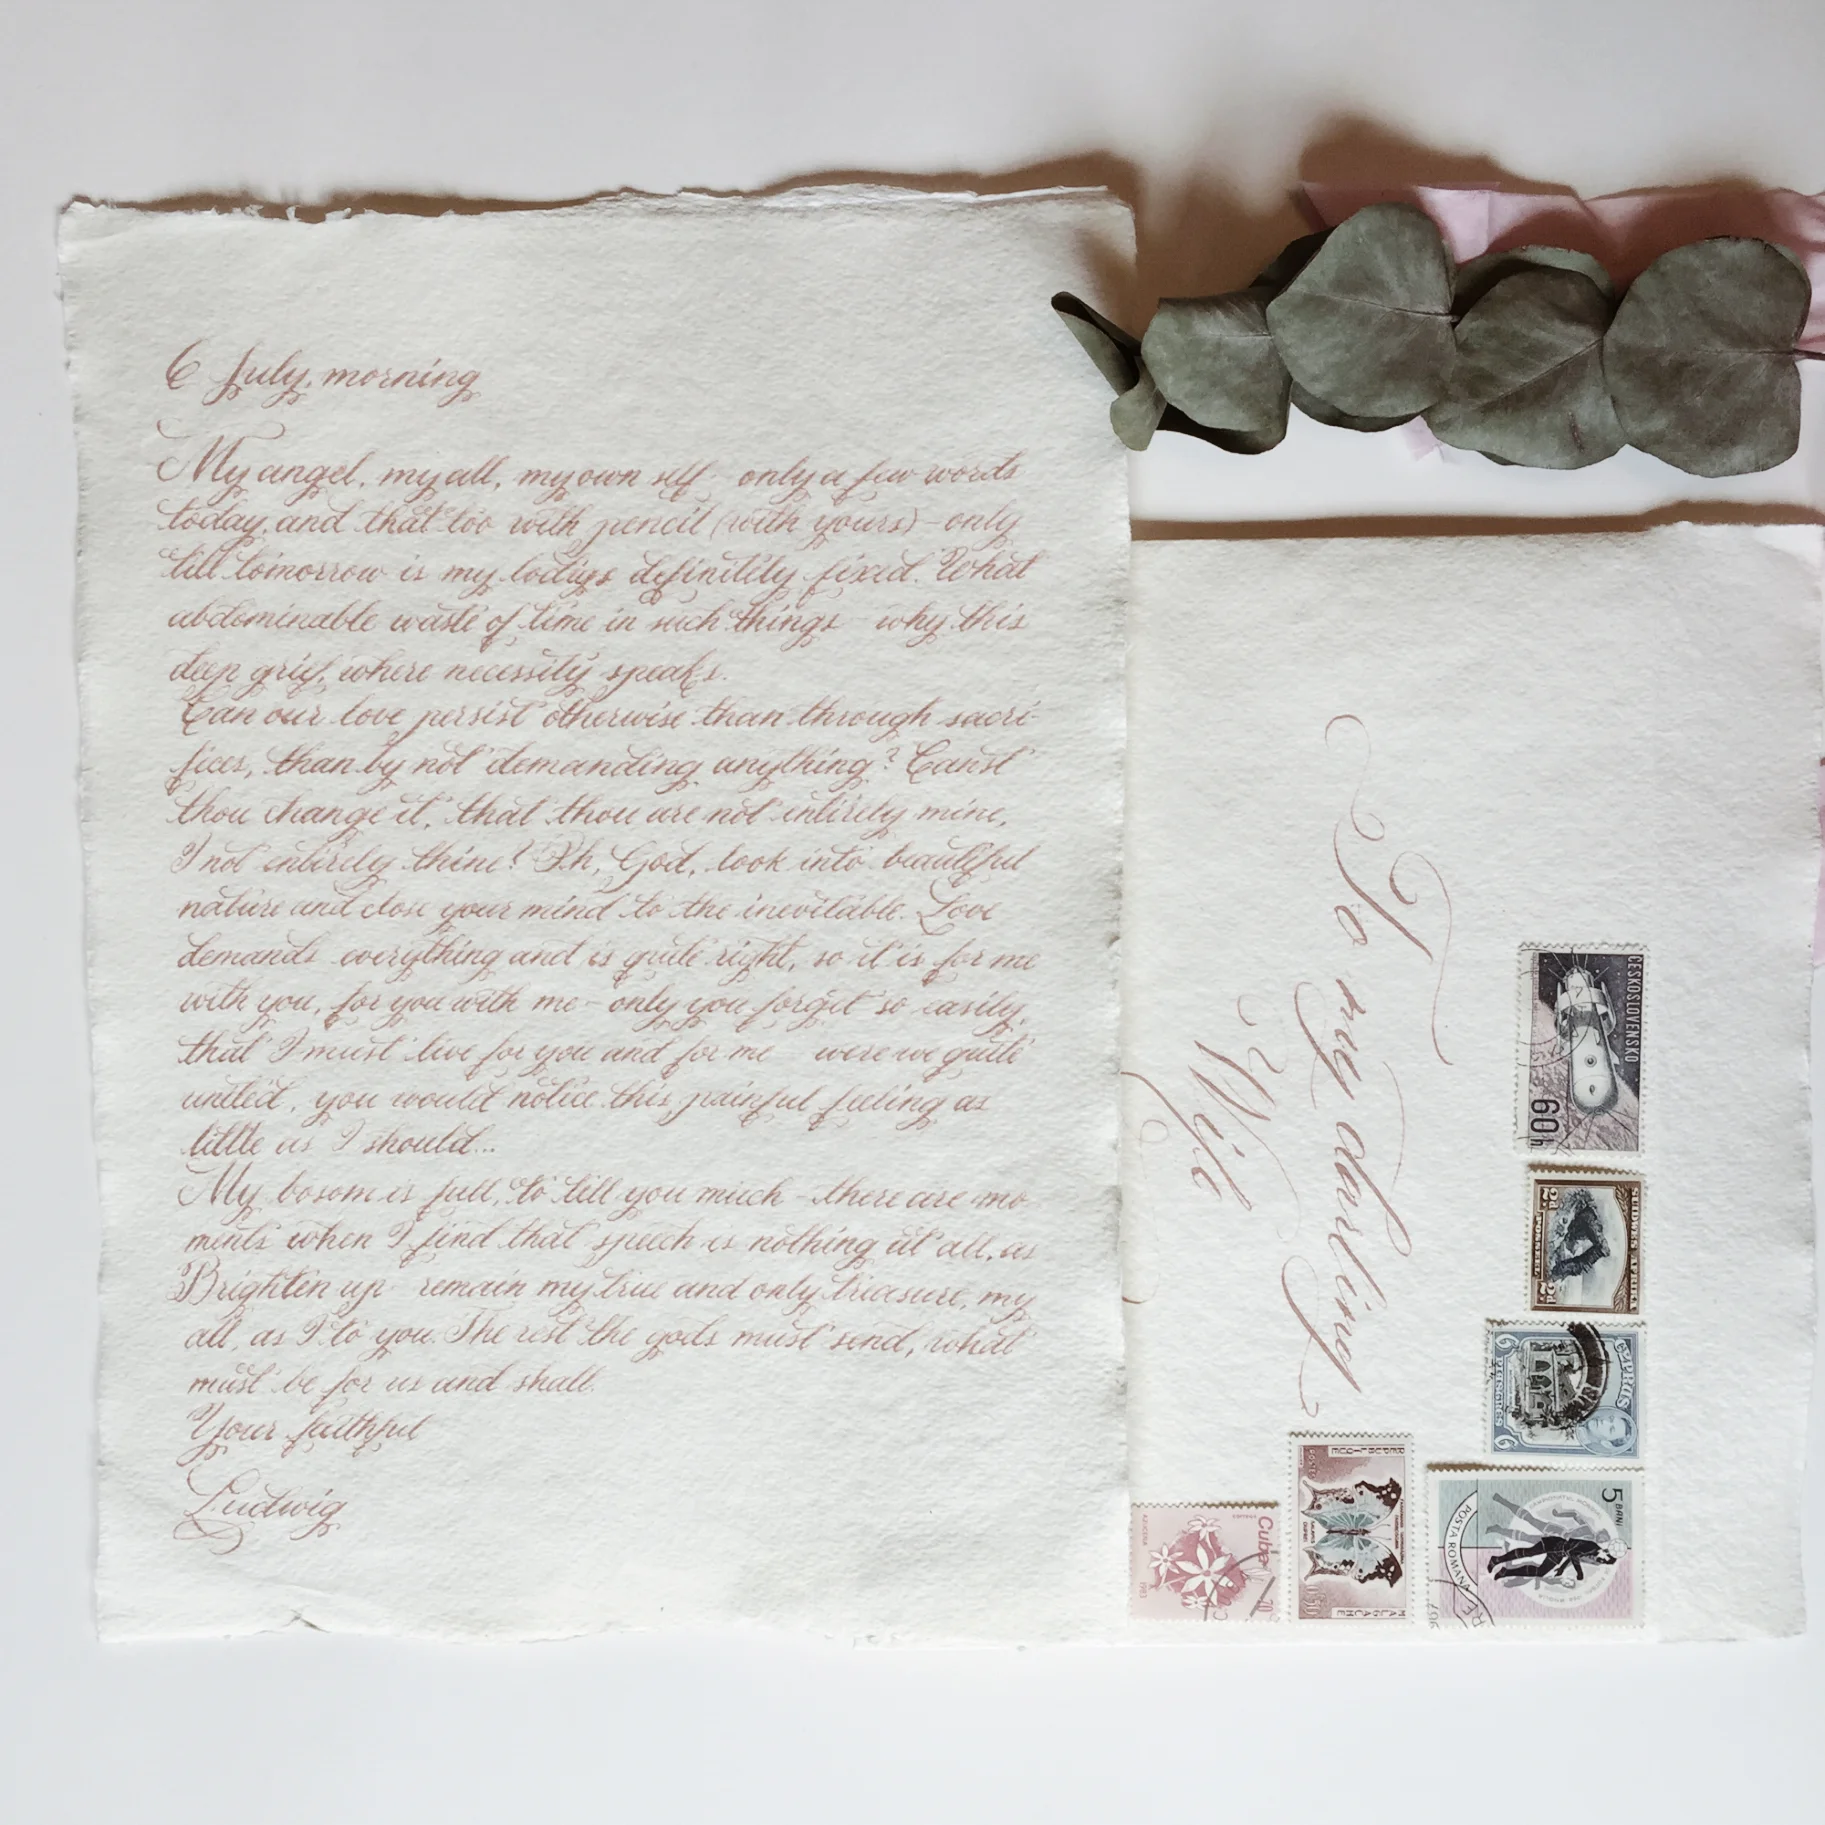 6 July, morning
My angel, my all, my own self - only a few words
today, and that too with pencil (with yours) - only
till tomorrow is my lodigs definitely fixed. What
abdominable waste of time in such things - why this
deep grief, where necessity speaks.
Can our love persist otherwise than through sacri-
fices, than by not demanding anything? Canst
thou change it, that thou are not entirely mine,
I not entirely thine? Oh, God, look into beautiful
nature and close your mind to the inevitable. Love
demands everything and is quite right, so it is for me
with you, for you with me - only you forget so easily,
that I must live for you and for me - were we quite
united, you would notice this painful feeling as
little as I should...
My bosom is full, to tell you much - there are mo-
ments when I find that speech is nothing at all, as
Brighten up - remain my true and only treasure, my
all, as I to you. The rest the gods must send, what
must be for us and shall.
Your faithful
Ludwig
To my darling
Wife
CESKOSLOVENSKO
60h
SUIDWES AFRIKA
2d. POSSEEL 2d.
CYPRUS
6 PIASTRES 6
5 BANI
POSTA ROMANA
REPUBLIQUE
POSTES
MALGACHE
Cuba